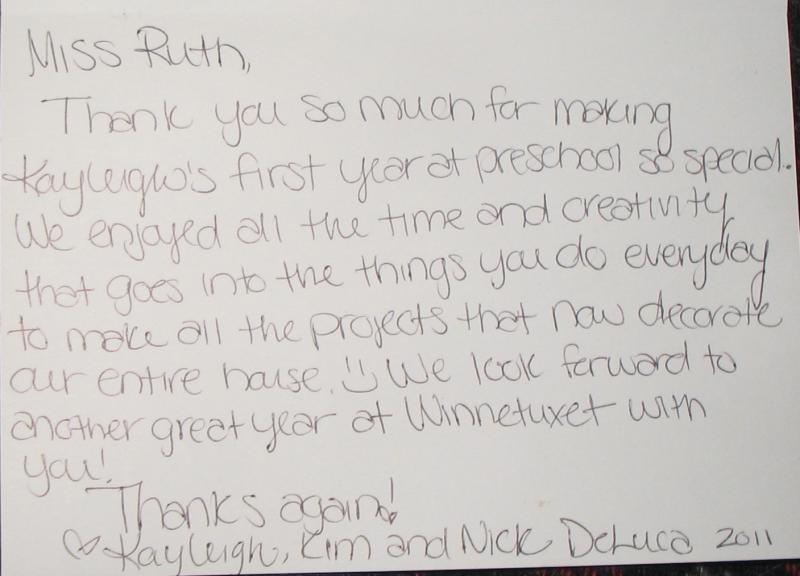 Miss Ruth,
Thank you so much for making
Kayleigh's first year at preschool so special.
We enjoyed all the time and creativity
that goes into the things you do everyday
to make all the projects that now decorate
our entire house. We look forward to
another great year at Winnetuxet with
you!
Thanks again!
Kayleigh, Kim and Nick DeLuca 2011